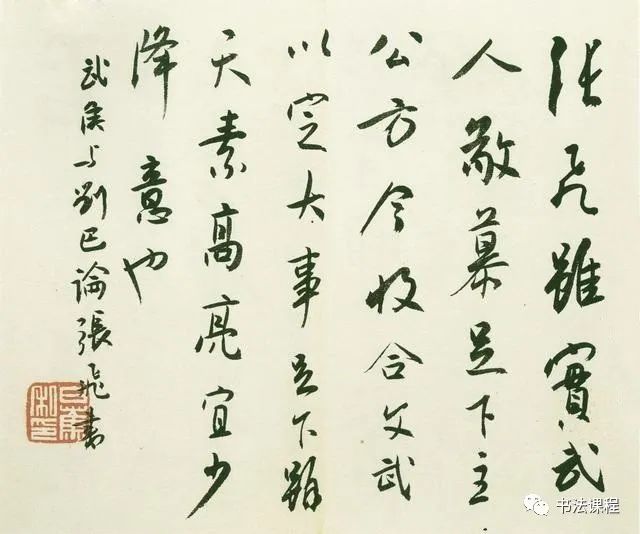 张飞雖實武
人敬慕足下主
公方今收合文武
以定大事足下雖
天素高亮宜少
降意也
武侯与劉巴論張飛書
书法课程